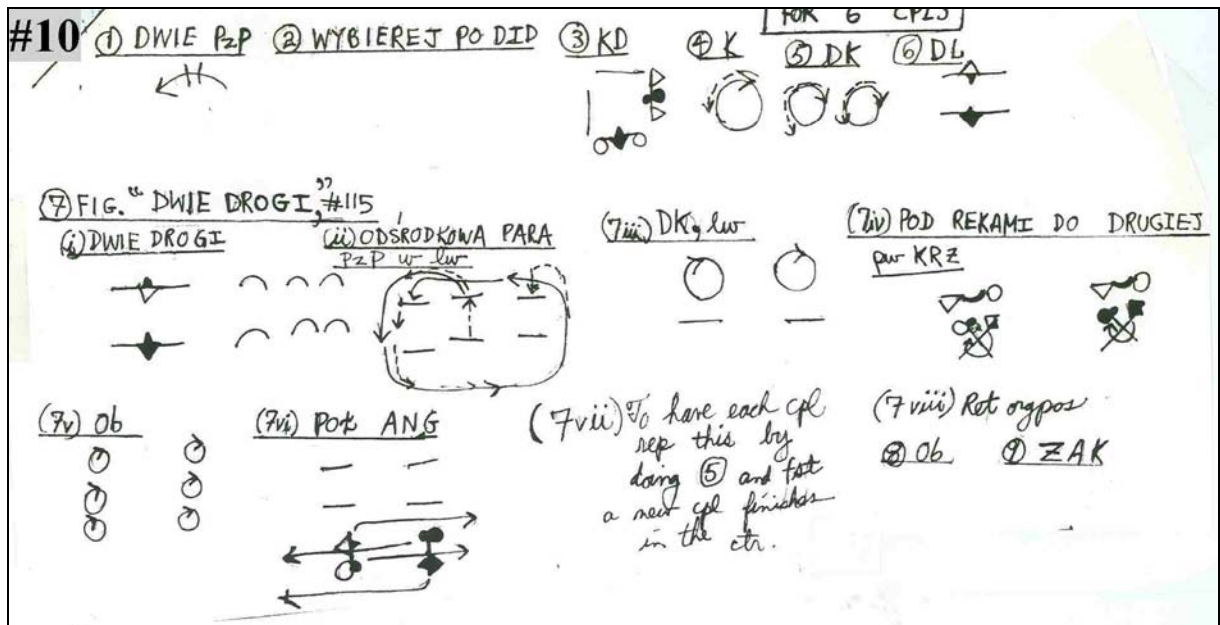 #10
FOR 6 CPLS
① DWIE PzP ② WYBIEREJ PO DID ③ KD ④ K ⑤ DK ⑥ DL
⑦ FIG. "DWIE DROGI," #115
(i) DWIE DROGI
(ii) ODŚRODKOWA PARA
PzP w lw
(7iii) DK, lw
(7iv) POD REKAMI DO DRUGIEJ
pw KRZ
(7v) Ob
(7vi) POt ANG
(7vii) To have each cpl
rep this by
doing ⑤ and
a new cpl finishes
in the ctr.
(7viii) Ret orgpos
⑧ Ob ⑨ ZAK